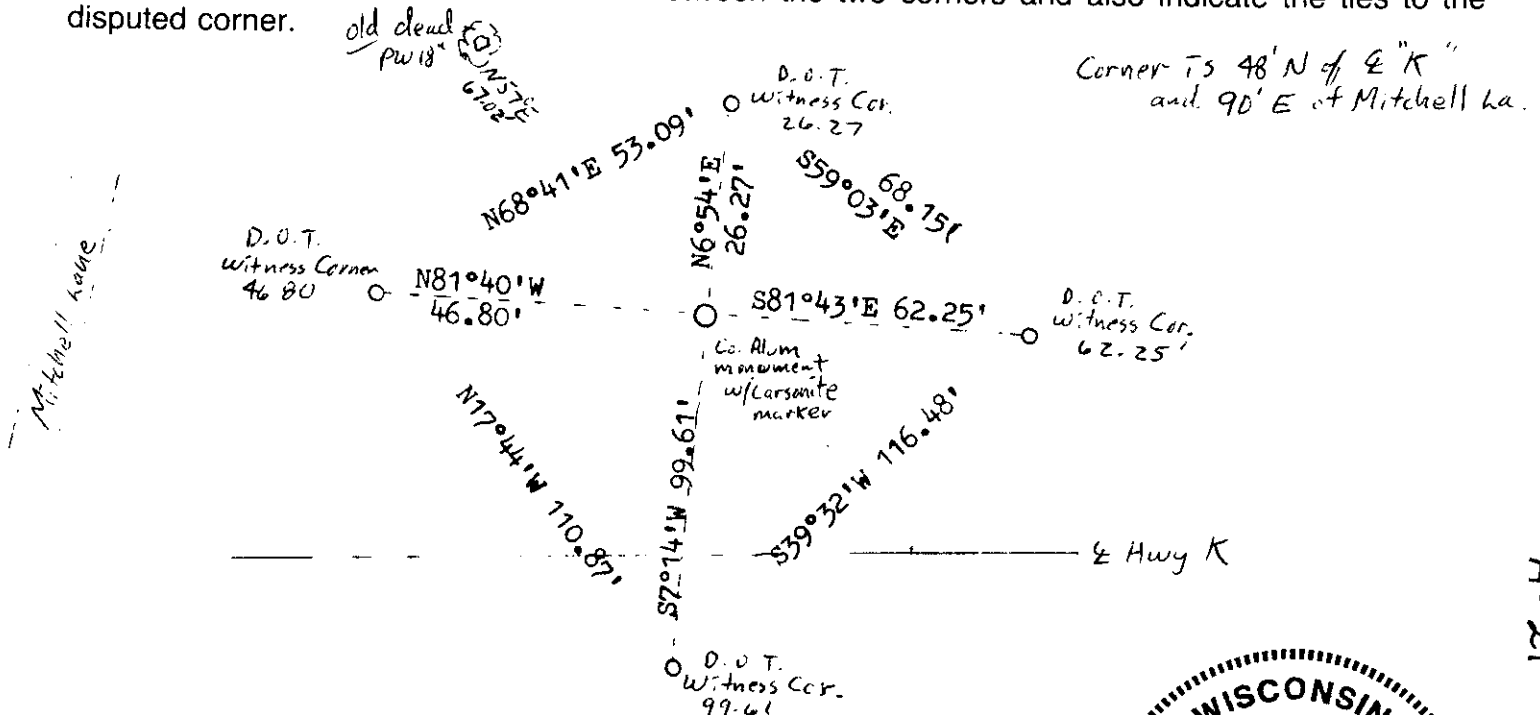 between the two corners and also indicate the ties to the
disputed corner.
old dead
PW 18"
N57°E
67.02'
D.O.T.
Witness Cor.
26.27
Corner is 48' N of ℄ "K"
and 90' E of Mitchell La.
N68°41'E 53.09'
N6°54'E
26.27'
S59°03'E
68.15'
Mitchell Lane
D.O.T.
Witness Corner
46.80
N81°40'W
46.80'
S81°43'E 62.25'
D.O.T.
Witness Cor.
62.25'
Co. Alum
monument
w/Carsonite
marker
N17°44'W 110.87'
S7°14'W 99.61'
S39°32'W 116.48'
℄ Hwy K
D.O.T.
Witness Cor.
99.61
WISCONSIN